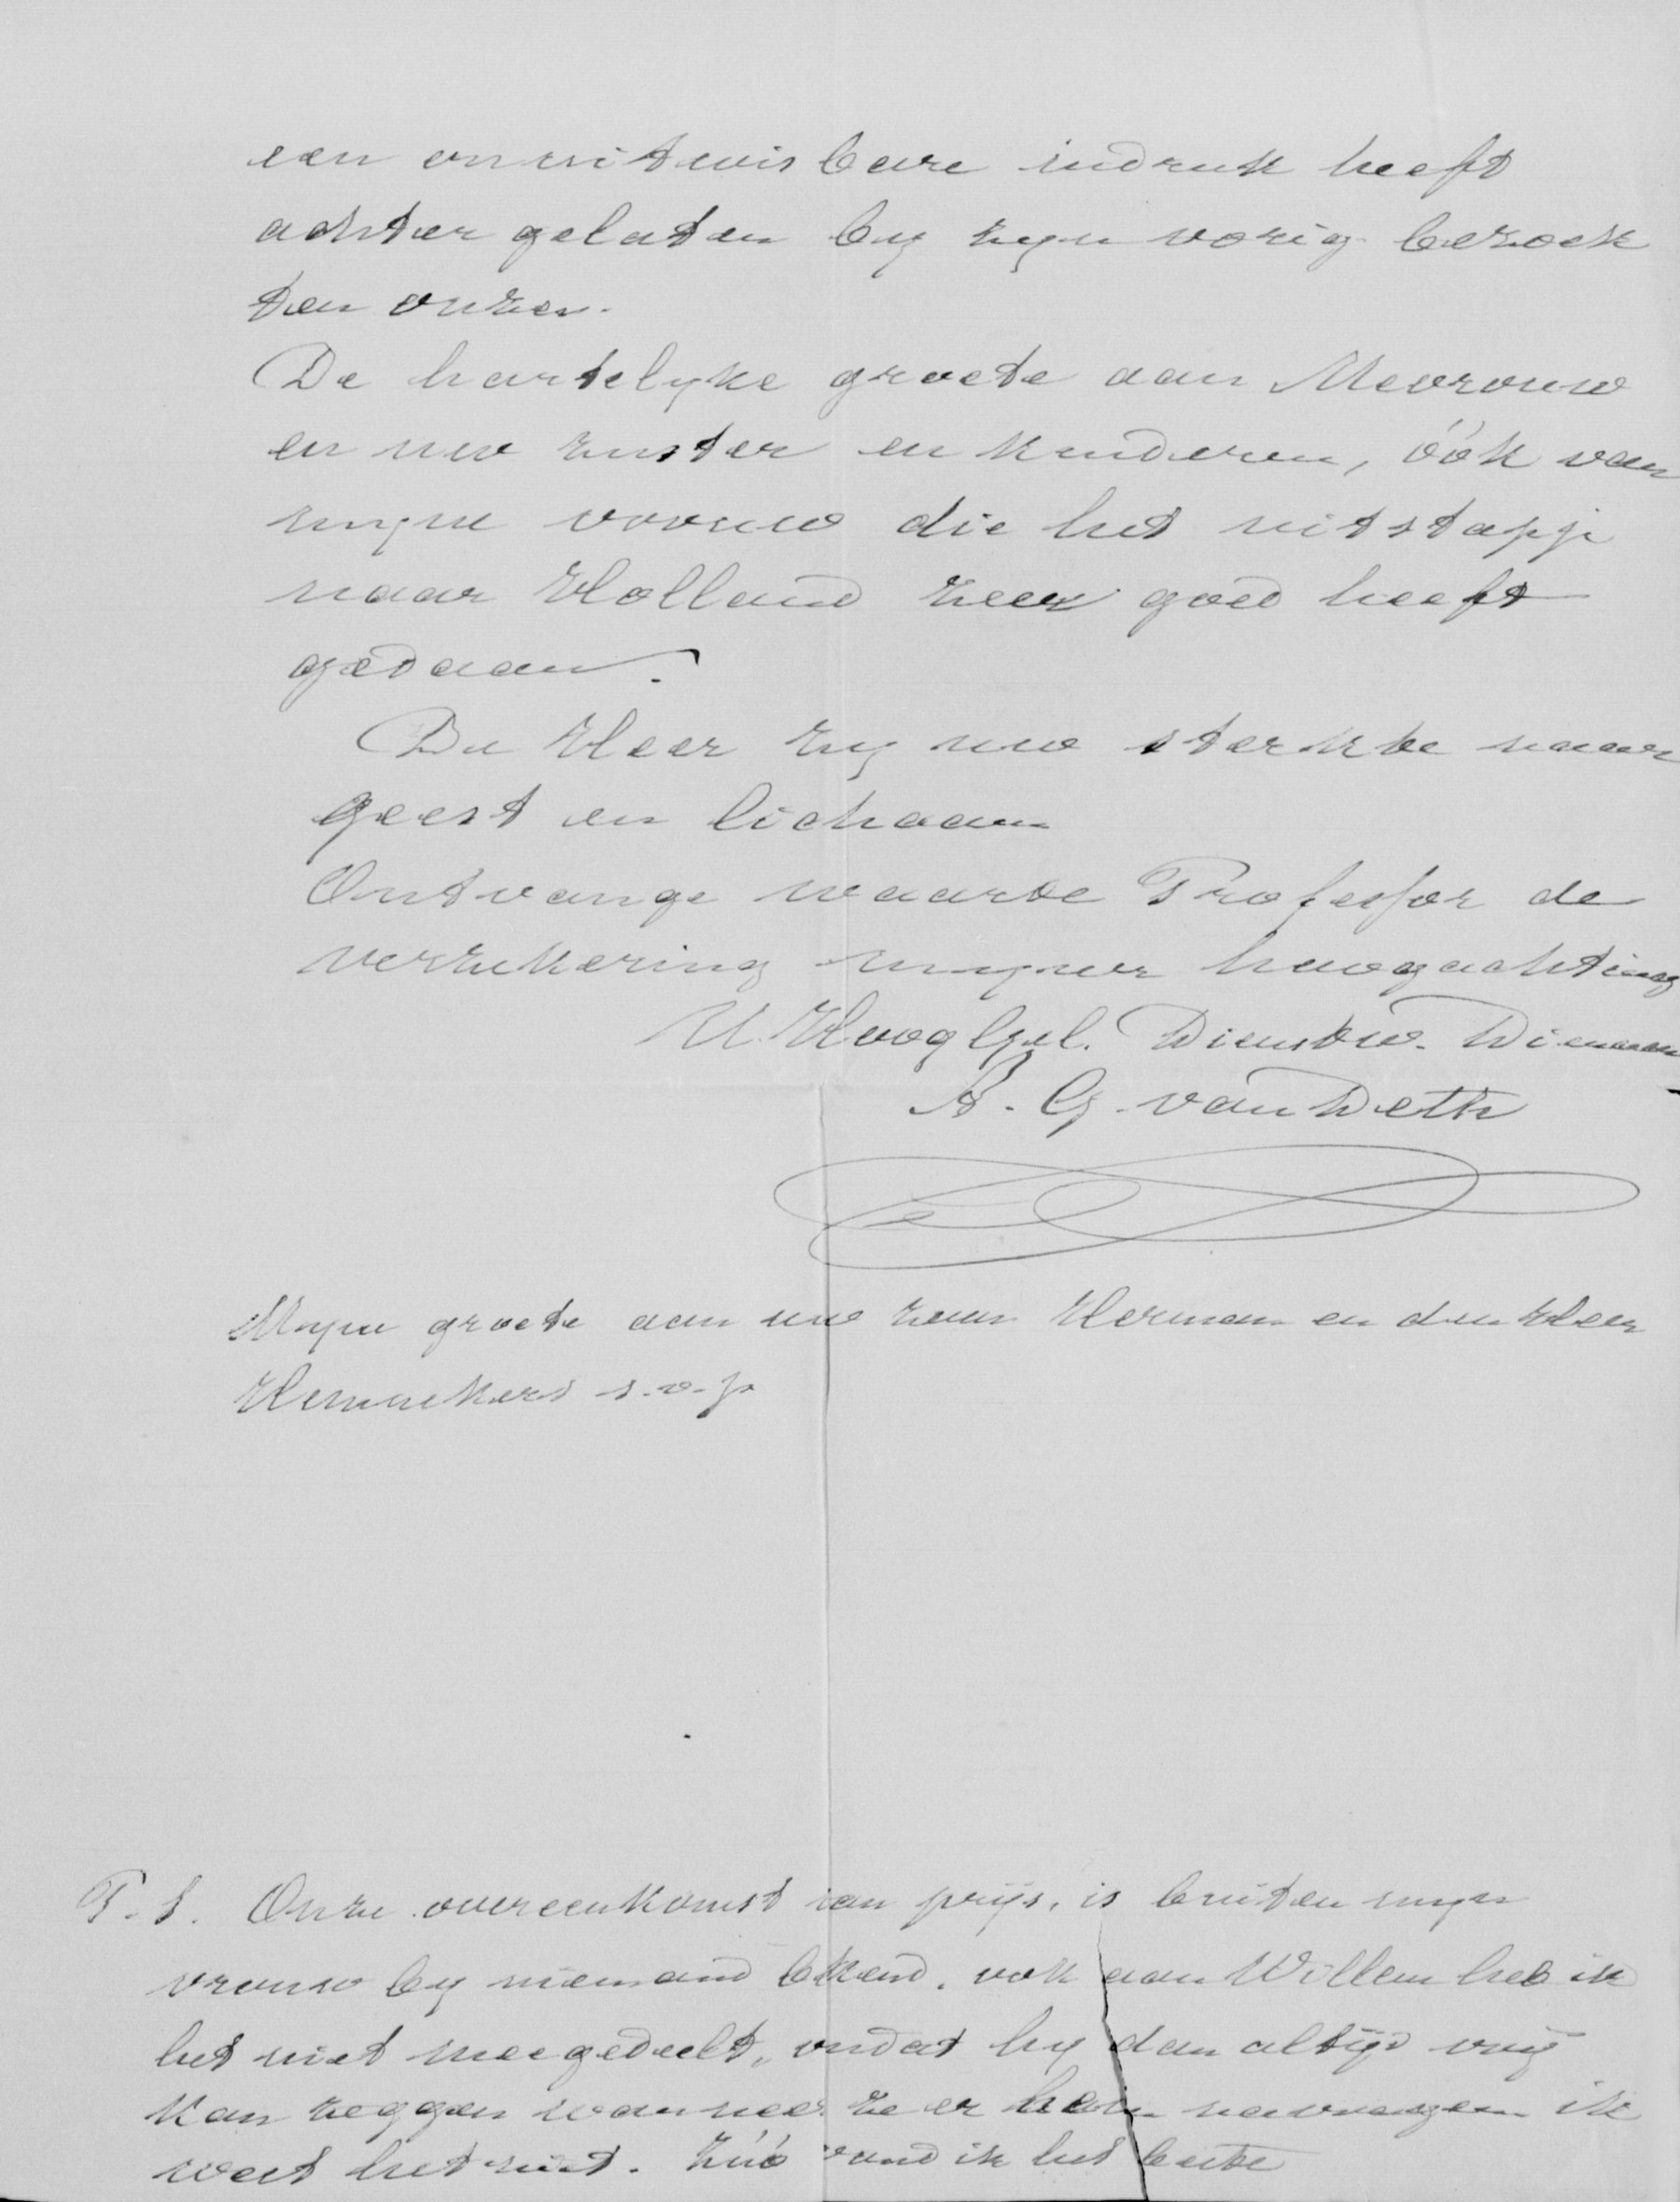 een onuitwisbare indruk heeft
achter gelaten by zyn vorig bezoek
ten onzen.
De hartelyke groete aan Mevrouw
en uw zuster en kinderen, óók van
myne vrouw die het uitstapje
naar Holland zeer goed heeft
gedaan.
De Heer zy uw sterkte naar
geest en lichaam
Ontvange waarde Professor de
verzekering myner hoogachting
U. HoogGel. Dienstw. Dienaar
A. G. van Deth
Myne groete aan uw zoon Herman en den Heer
Hennekers s.v.p
P.S. Onze overeenkomst van prijs, is buiten myn
vrouw by niemand bekend. ook aan Willem heb ik
het niet meegedeelt, omdat hy dan altijd vrij
kan zeggen wanneer ze er hem navragen ik
weet het niet. Zóó vond ik het beste